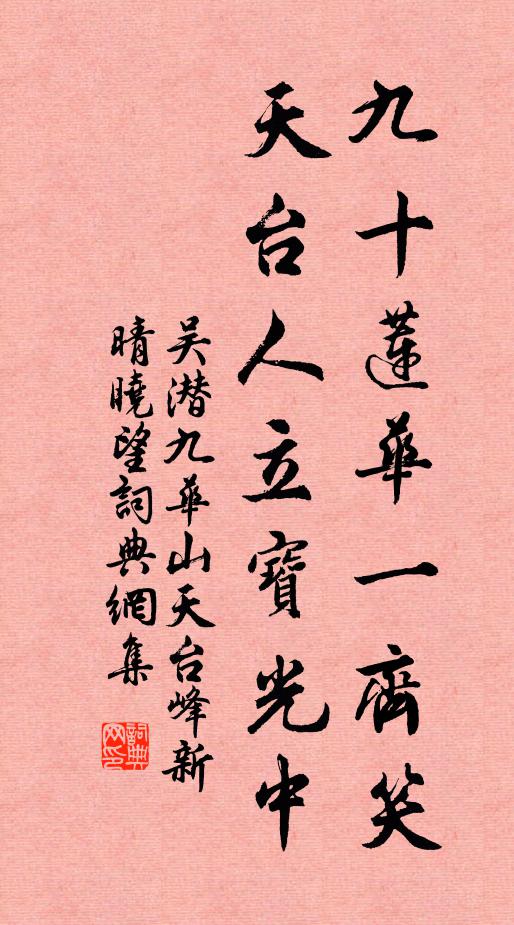 九十蓮華一齊笑
天台人立寶光中
吴潜九華山天台峰新
晴曉望詞典網集
詞典
网印